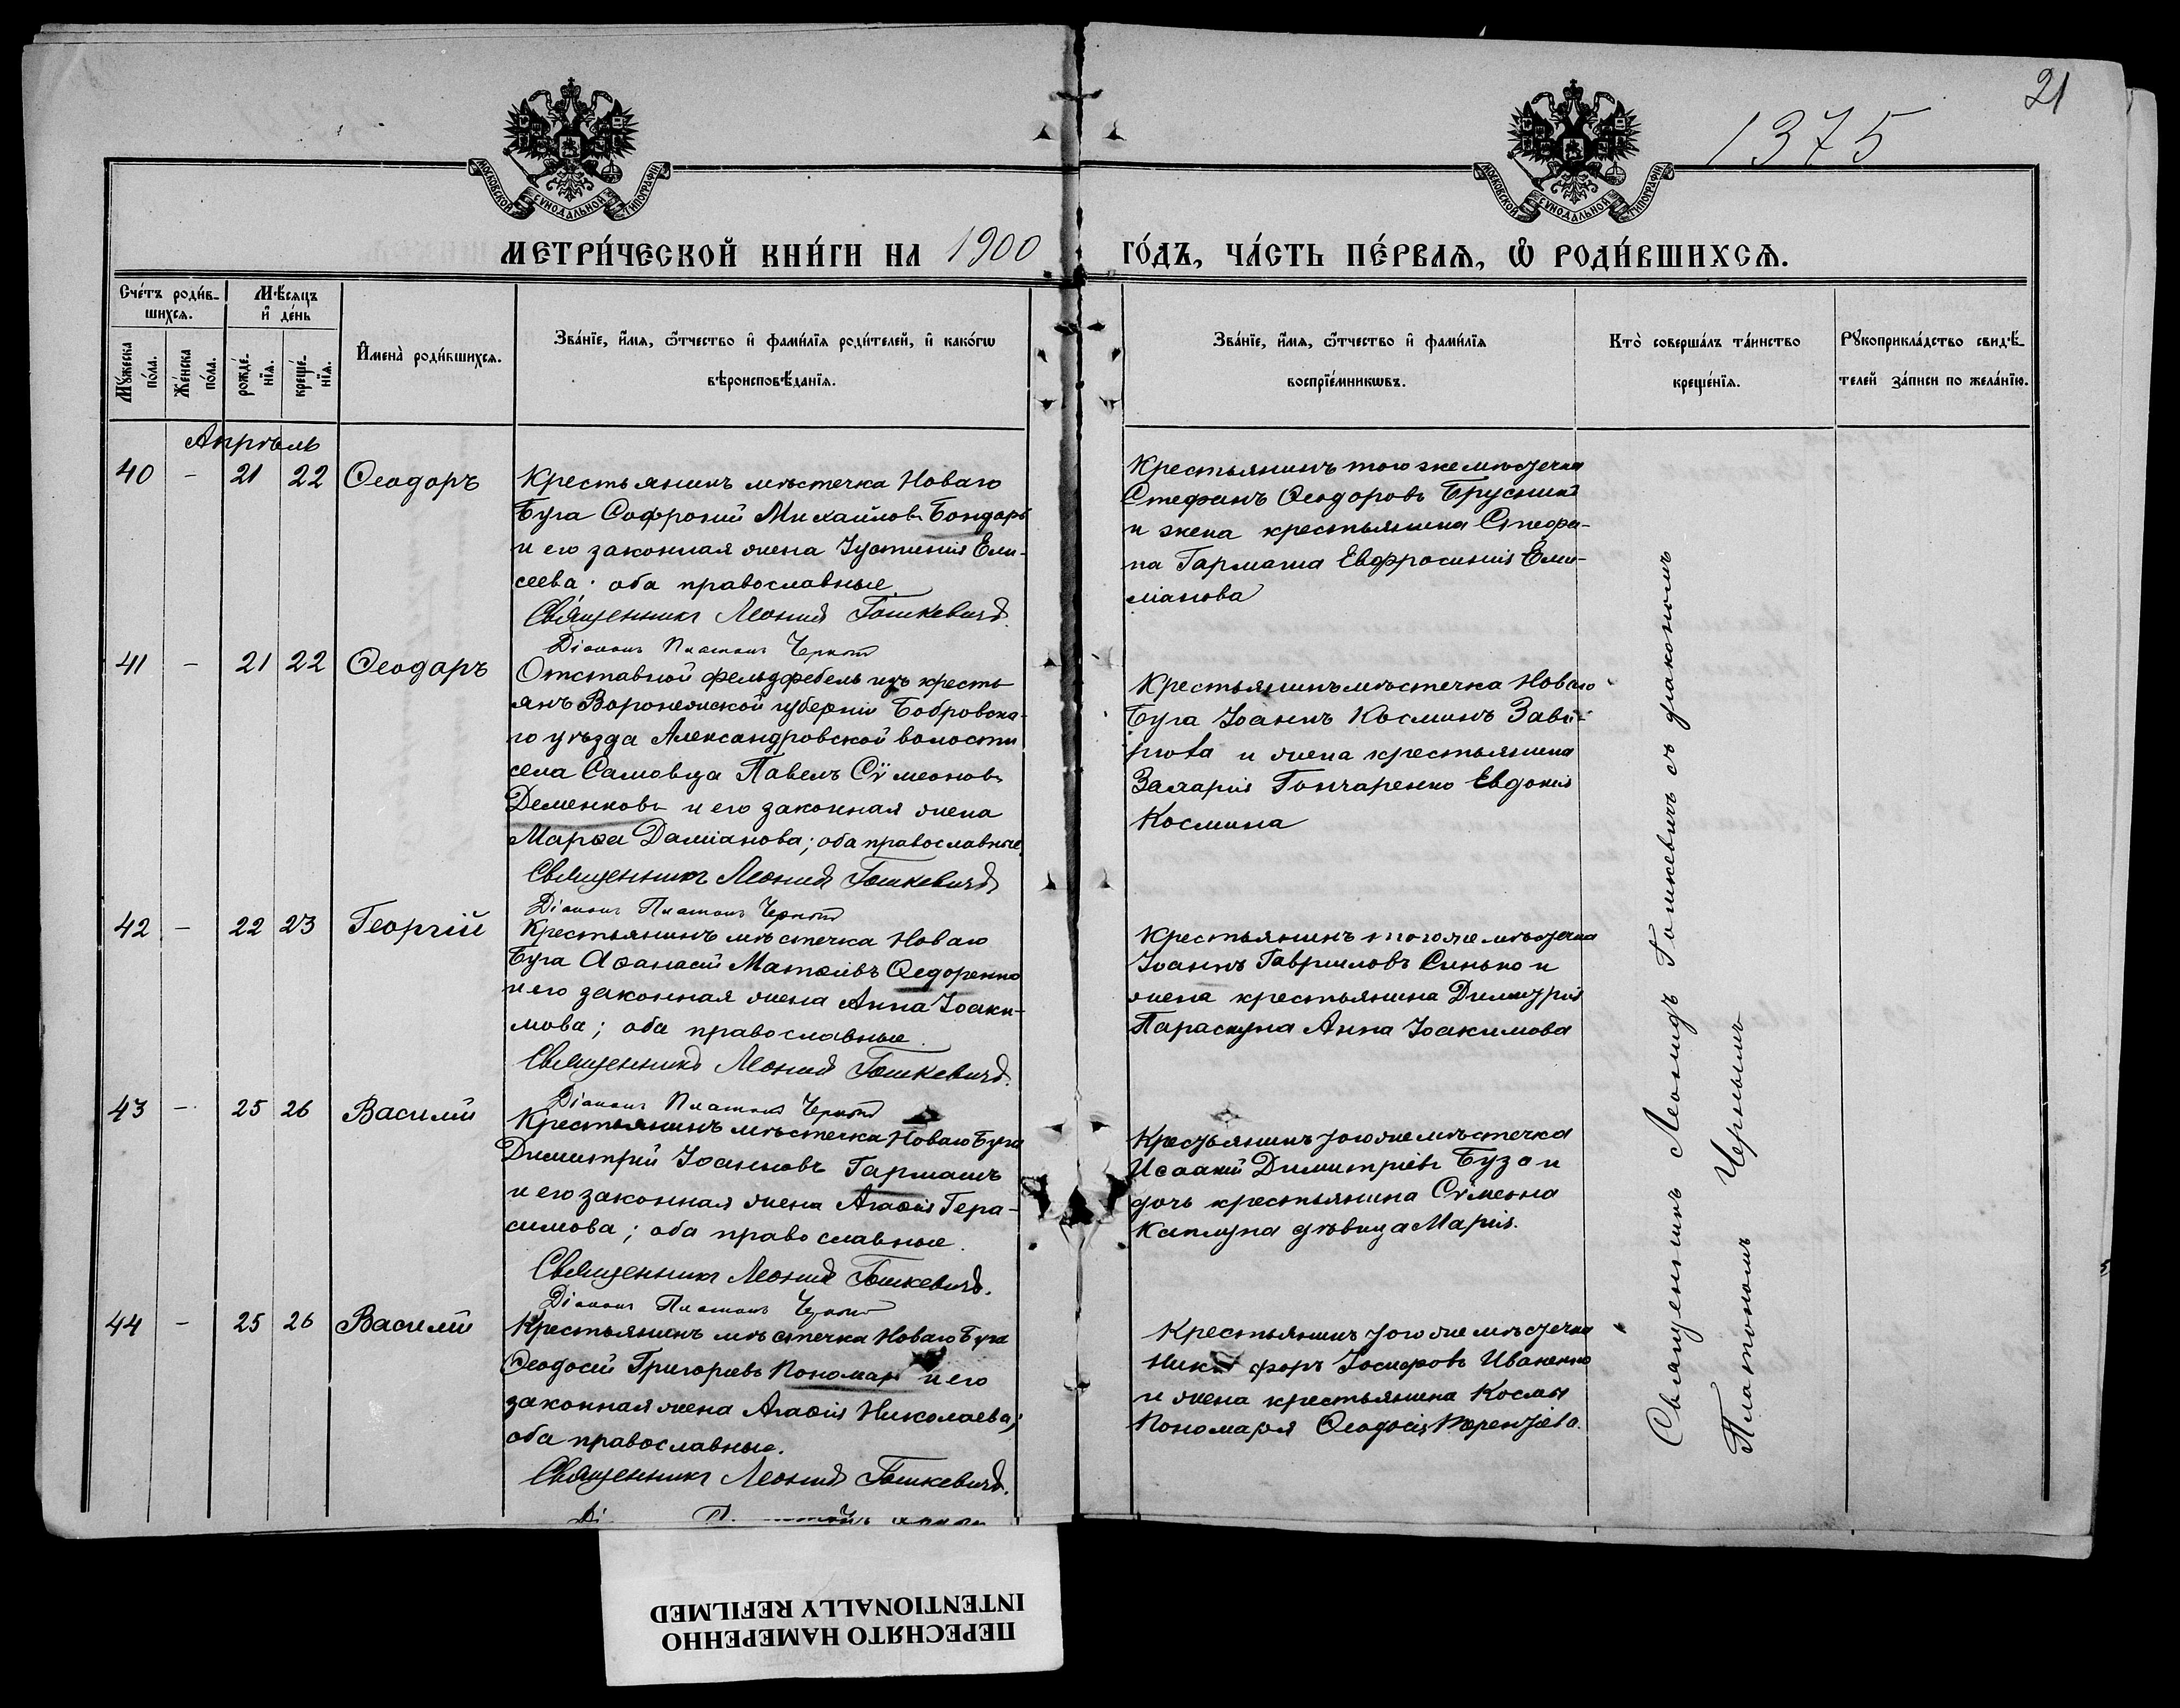 21
1375
МОСКОВСКОЙ СѴНОДАЛЬНОЙ ТИПОГРАФІИ
МОСКОВСКОЙ СѴНОДАЛЬНОЙ ТИПОГРАФІИ
МЕТРИ́ЧЕСКОЙ КНИ́ГИ НА 1900
ГО́ДЪ, ЧА́СТЬ ПЕ́РВАѦ, Ѡ҆ РОДИ́ВШИХСѦ.
Сче́тъ роди́в-
шихсѧ.
Мꙋ́жеска
по́ла.
Же́нска
по́ла.
Мѣ́сѧцъ
и҆ де́нь
рожде́-
нїѧ.
креще́-
нїѧ.
И҆мена̀ роди́вшихсѧ.
Зва́нїе, и҆́мѧ, ѻ҆́тчество и҆ фами́лїѧ роди́телей, и҆ како́гѡ
вѣроисповѣ́данїѧ.
Зва́нїе, и҆́мѧ, ѻ҆́тчество и҆ фами́лїѧ
воспрїе́мникѡвъ.
Кто̀ соверша́лъ та́инство
креще́нїѧ.
Рꙋкоприкла́дство свидѣ́-
телей за́писи по жела́нїю.
Апрѣль
40 - 21 22 Ѳеодоръ
Крестьянинъ мѣстечка Новаго
Буга Софроній Михайловъ Бондарь
и его законная жена Іустинія Ели-
сеева; оба православные
Священникъ Леонид Гошкевичъ.
Діаконъ Платонъ Черный
Крестьянинъ того же мѣстечка
Стефанъ Ѳеодоровъ Брусник
и жена крестьянина Стефа-
на Гармаша Евфросинія Еми-
ліанова
41 - 21 22 Ѳеодоръ
Отставной фельдфебель изъ кресть
янъ Воронежской губерніи Бобровска-
го уѣзда Александровской волости
села Самовца Павелъ Сѵмеоновъ
Деменковъ и его законная жена
Марѳа Даміанова; оба православные.
Священникъ Леонид Гошкевичъ
Діаконъ Платонъ Черный
Крестьянинъ мѣстечка Новаго
Буга Іоаннъ Косминъ Зави-
и жена крестьянина
Захарія Гончаренко Евдокія
Космина
42 - 22 23 Георгій
Крестьянинъ мѣстечка Новаго
Буга Аѳанасій Матѳіевъ Ѳедоренко
и его законная жена Анна Іоаки-
мова; оба православные.
Священникъ Леонид Гошкевичъ.
Діаконъ Платонъ Черный
Крестьянинъ того же мѣстечка
Іоаннъ Гавриловъ Синько и
жена крестьянина Димитрія
Параскуна Анна Іоакимова
43 - 25 26 Василій
Крестьянинъ мѣстечка Новаго Буга
Димитрій Іоанновъ Гармашъ
и его законная жена Агаѳія Гера-
симова; оба православные.
Священникъ Леонид Гошкевичъ.
Діаконъ Платонъ Черный
Крестьянинъ того же мѣстечка
Исаакій Димитріевъ Буза и
дочь крестьянина Сѵмеона
Каплуна дѣвица Марія.
44 - 25 26 Василій
Крестьянинъ мѣстечка Новаго Буга
Ѳеодосій Григорьевъ Пономарь и его
законная жена Агаѳія Николаева;
оба православные.
Священникъ Леонид Гошкевичъ.
Крестьянинъ того же мѣстечка
Никифоръ Іосифовъ Иваненко
и жена крестьянина Космы
Пономаря Ѳеодосія Терентіева.
Священникъ Леонидъ Гошкевичъ съ діакономъ
Платономъ Чернымъ
ПЕРЕСНЯТО НАМЕРЕННО
INTENTIONALLY REFILMED